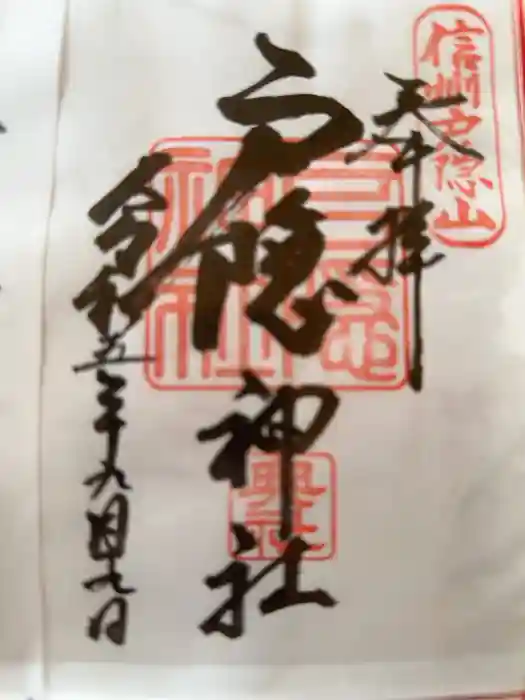 信州戸隠山
奉拝
戸隠神社
戸隠神社
奥社
令和五年九月九日